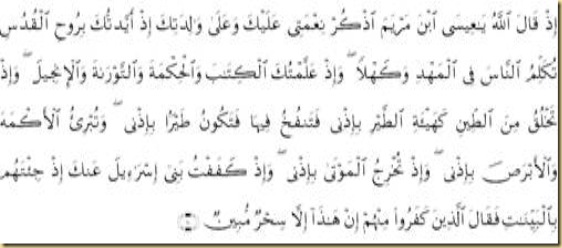 إِذْ قَالَ ٱللَّهُ يَٰعِيسَى ٱبْنَ مَرْيَمَ ٱذْكُرْ نِعْمَتِى عَلَيْكَ وَعَلَىٰ وَٰلِدَتِكَ إِذْ أَيَّدتُّكَ بِرُوحِ ٱلْقُدُسِ
تُكَلِّمُ ٱلنَّاسَ فِى ٱلْمَهْدِ وَكَهْلًا ۖ وَإِذْ عَلَّمْتُكَ ٱلْكِتَٰبَ وَٱلْحِكْمَةَ وَٱلتَّوْرَىٰةَ وَٱلْإِنجِيلَ ۖ وَإِذْ
تَخْلُقُ مِنَ ٱلطِّينِ كَهَيْـَٔةِ ٱلطَّيْرِ بِإِذْنِى فَتَنفُخُ فِيهَا فَتَكُونُ طَيْرًۢا بِإِذْنِى ۖ وَتُبْرِئُ ٱلْأَكْمَهَ
وَٱلْأَبْرَصَ بِإِذْنِى ۖ وَإِذْ تُخْرِجُ ٱلْمَوْتَىٰ بِإِذْنِى ۖ وَإِذْ كَفَفْتُ بَنِىٓ إِسْرَٰٓءِيلَ عَنكَ إِذْ جِئْتَهُم
بِٱلْبَيِّنَٰتِ فَقَالَ ٱلَّذِينَ كَفَرُوا۟ مِنْهُمْ إِنْ هَٰذَآ إِلَّا سِحْرٌ مُّبِينٌ